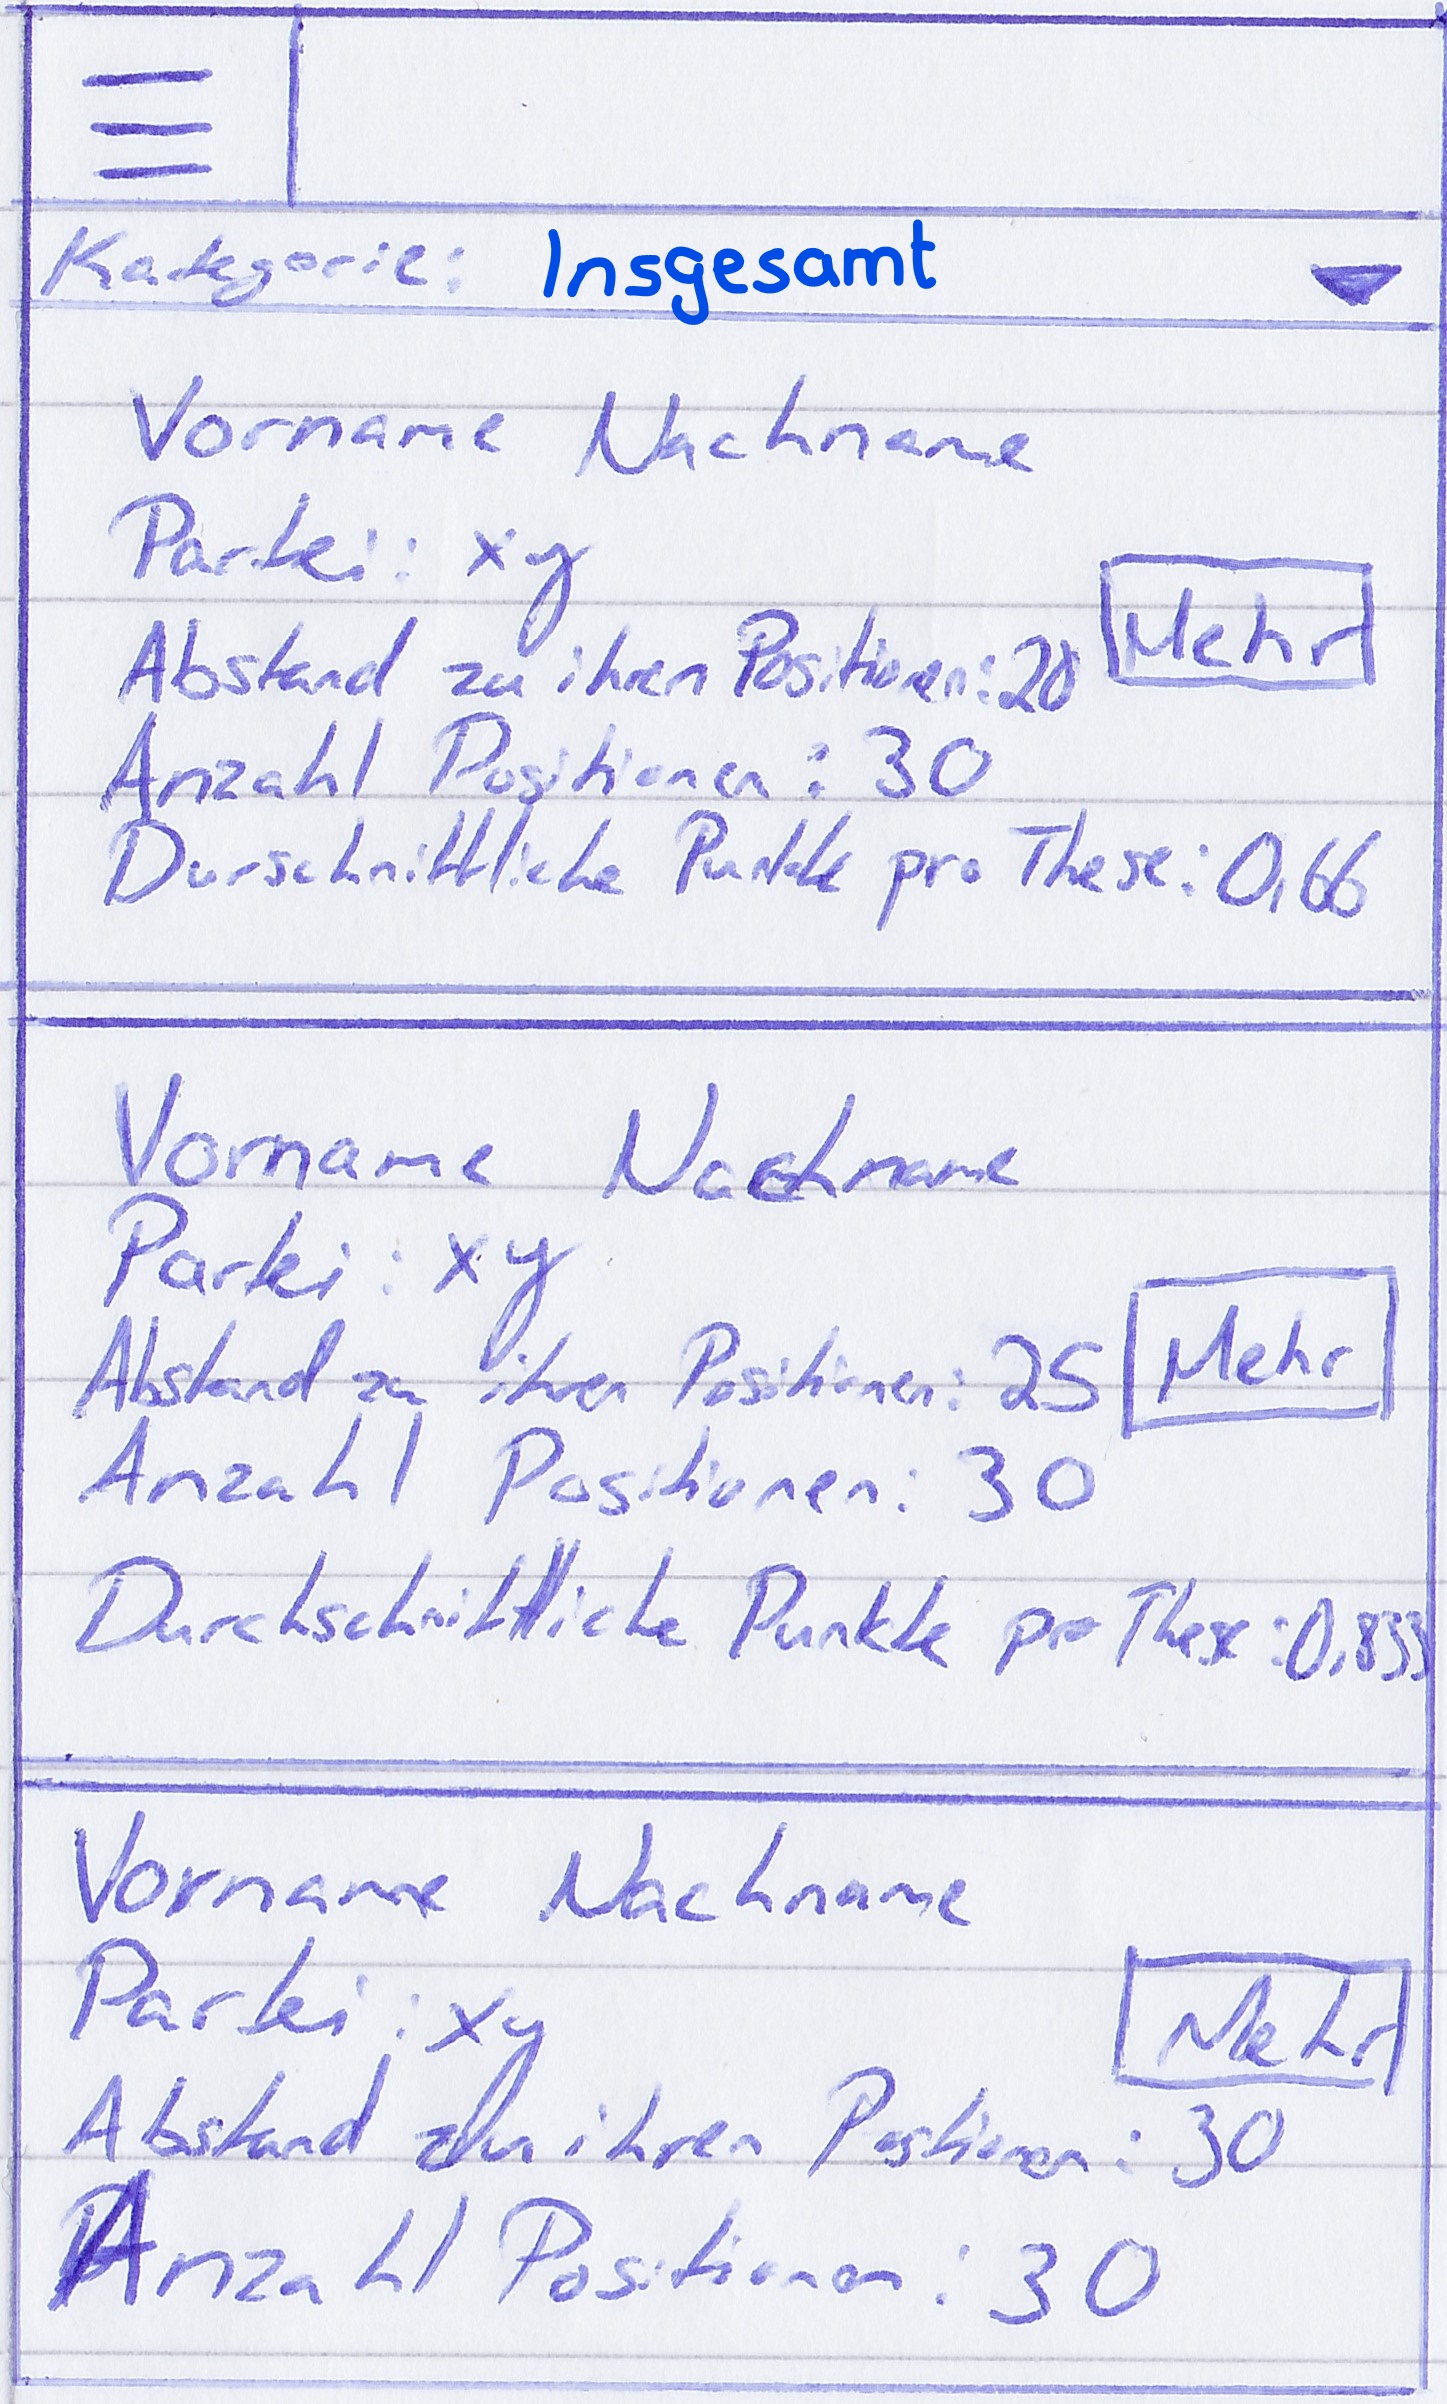 Kategorie: Insgesamt
Vorname Nachname
Partei: xy
Abstand zu ihren Positionen: 20
Mehr
Anzahl Positionen: 30
Durschnittliche Punkte pro These: 0,66
Vorname Nachname
Partei: xy
Abstand zu ihren Positionen: 25
Mehr
Anzahl Positionen: 30
Durchschnittliche Punkte pro These: 0,833
Vorname Nachname
Partei: xy
Mehr
Abstand zu ihren Postionen: 30
Anzahl Positionen: 30